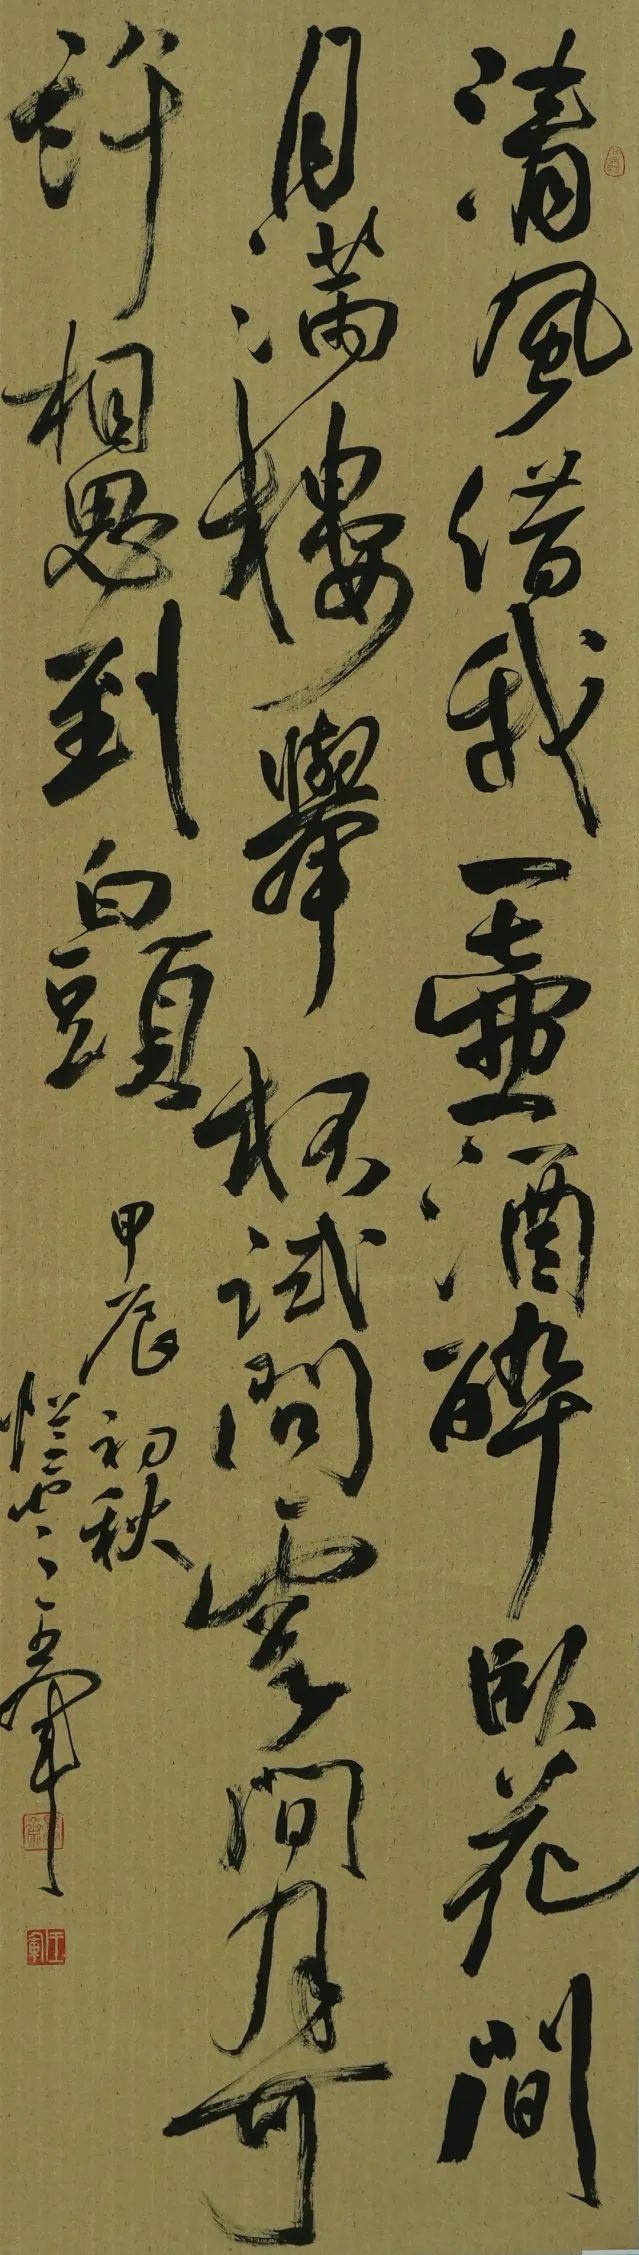 清風借我一壺酒醉臥花間
月滿樓舉杯試問雲間月可
許相思到白頭
甲辰初秋
王軍